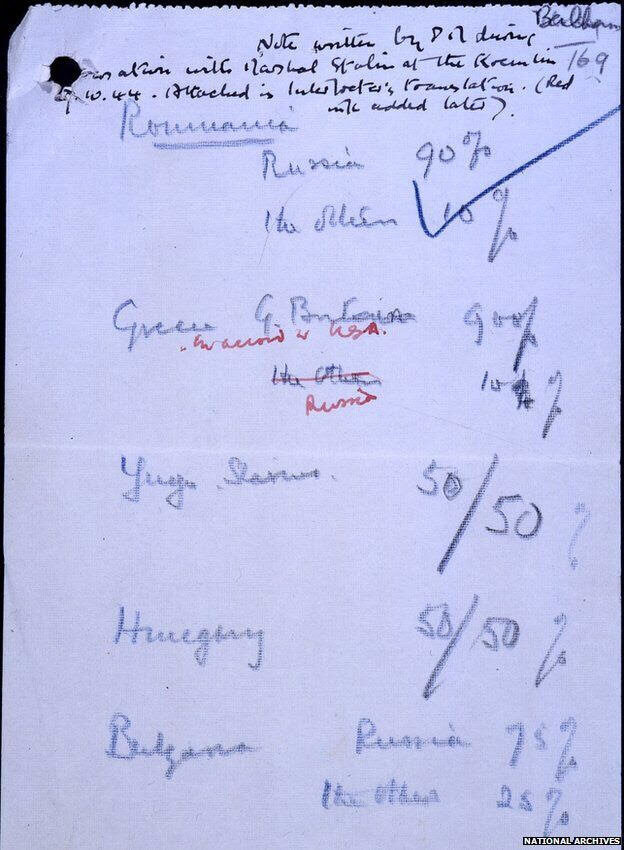 Note written by P.M during
conversation with Marshal Stalin at the Kremlin 169
9.10.44. Attached is Interpreter's translation. (Red
ink added later).
Roumania
Russia 90%
The others 10%
Greece G. Britain 90%
in accord w USA.
The others 10%
Russia
Yugo Slavia. 50/50 %
Hungary 50/50 %
Bulgaria Russia 75%
The others 25%
NATIONAL ARCHIVES